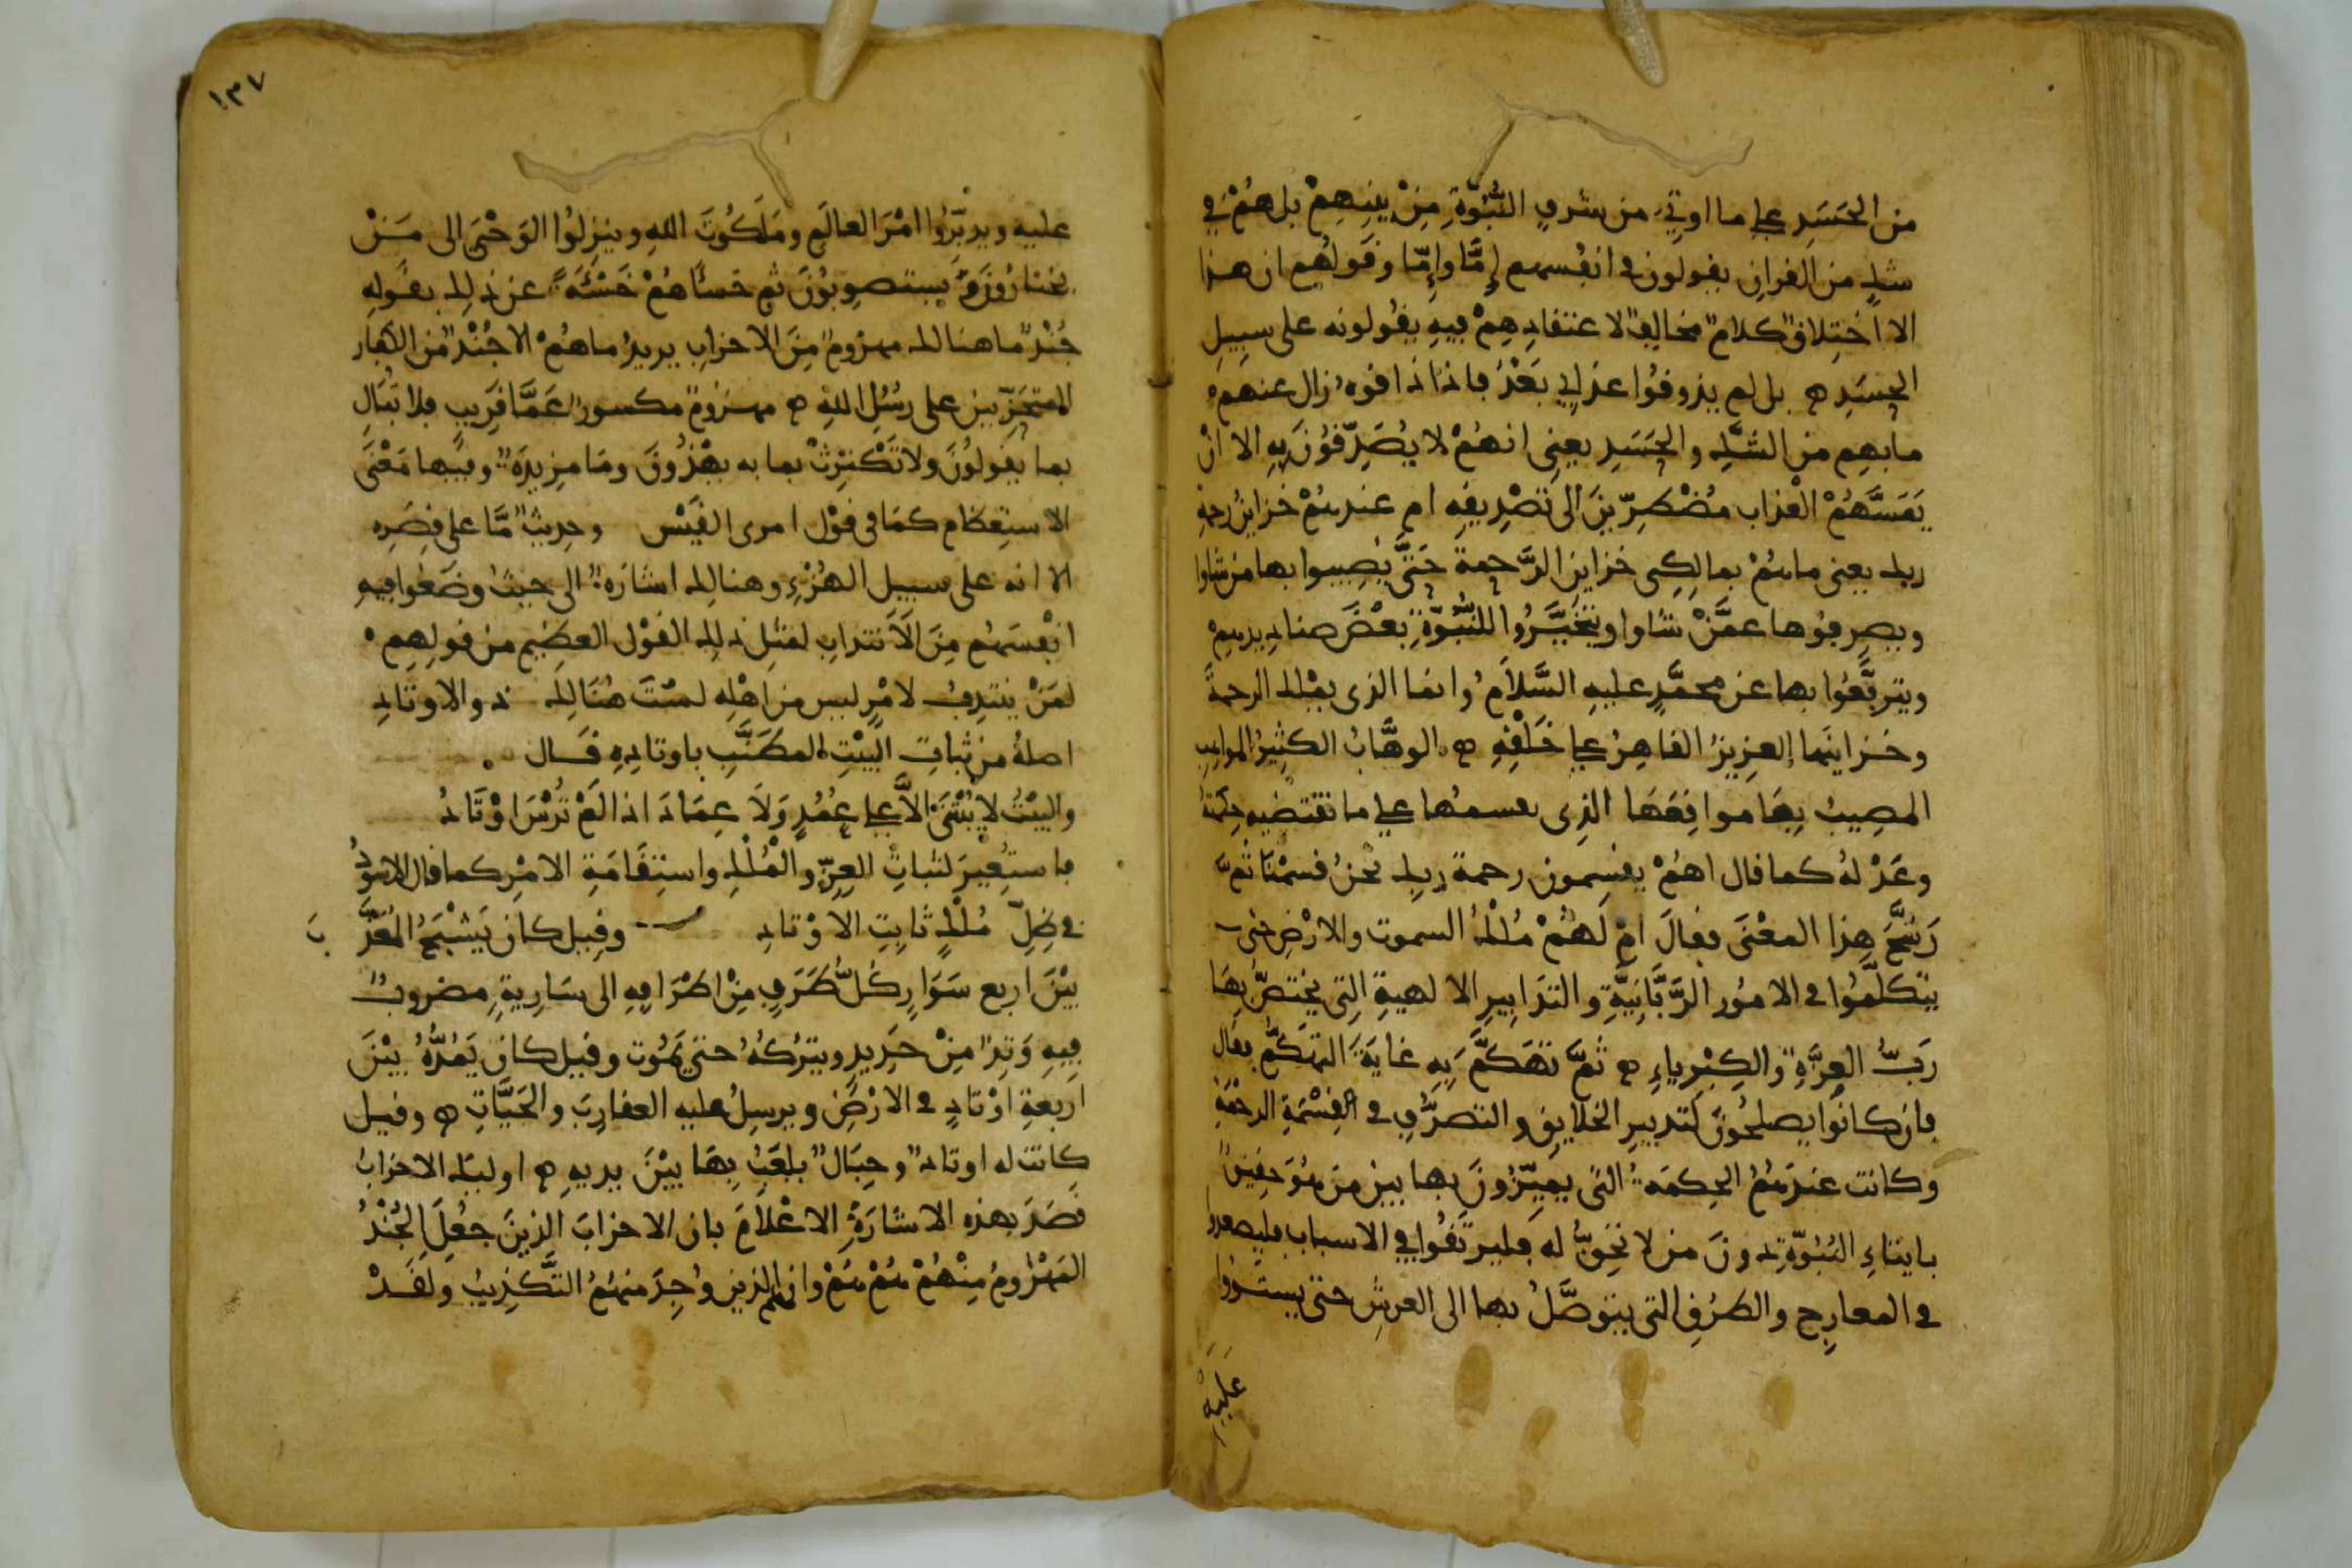 من الحَسَدِ على ما اوتِيَ من شرفِ النُّبُوّةِ مِنْ بينِهِمْ بل هُمْ في
شكٍ من القرانِ يقولون في انفُسهم إِمَّا وإِمّا وقولُهم ان هذا
الا اختِلاقٌ كلامٌ مخالِفٌ لاعتقادِهِمْ فيهِ يقُولونه على سبِيلِ
الحسَدِ ه بل لم يذوقُوا عذابي بَعْدُ فاذا ذاقوهُ زال عنهم
ما بهِم من الشّكِ والحَسَدِ يعنِى انهُمْ لا يُصَدِّقُونَ بِهِ الا انْ
يَمَسَّهُمْ العْذاب مُضْطرِّينَ الى تصْدِيقِهِ ام عندهُمْ خزاينُ رحمةِ
ربك يعنى ما هُمْ بمالِكِى خزاينِ الرَّحمةِ حَتَّى يُصِيبوا بها من شاوا
ويصرِفُوها عمَّنْ شاوا ويتَخَيَّرُوا للنُّبُوّةِ بَعْضَ صناديدهِمْ
ويترفَّعُوا بها عن محمَّدٍ عليهِ السَّلاَمُ وانما الذى يمْلك الرحمةَ
وخزاينَها العزِيزُ القاهِرُ على خَلْقِهِ ه الوهَّابُ الكثِيرُ المواهِبِ
المصِيبُ بِهَا مواقِعَهَا الذِى يقسمُها على ما تقتضيهِ حِكمتُهُ
وعَدْ لهُ كما قال اهُمْ يقسِمون رحمة ربك نحنُ قسمْنَا ثُمَّ
رَشَّحَ هذا المعْنَى فقالَ امْ لَهُمْ مُلْكُ السموت والارْضِ حتى
يتكلَّمُوا في الامُور الرَّبَّانِيَّةِ والتدَابِيرِ الالهيةِ التِى يختصُّ بِهَا
رَبُّ العِزَّةِ والكِبْرِياءِ ه ثمَّ تهَكَّمَ بِهِ غايَةَ التهَكُّمِ فقال
فان كانُوا يصلحُونَ لتدبيرِ الخلايقِ والتصرُّفِ في قِسْمَةِ الرحْمَةِ
وكانت عندَهُمُ الحِكمَةُ التى يميِّزُونَ بها بين من هُوَ حقِيقٌ
بايتاءِ النُبُوَّةِ دونَ من لا تحِقُّ له فليرتقُوا في الاسباب فليصعدوا
في المعارِجِ والطرُقِ التى يتوصَّلُ بها الى العرشِ حتى يستووا
عليهِ
١٣٧
عليه ويدبِّرُوا امْرَ العالَمِ ومَلَكُوتَ اللهِ وينزِلُوا الوَحْىَ الى مَنْ
يختارُونَ ويستصوِبُونَ ثم خسأَهُمْ خَسْئَةً عن ذلِك بقوله
جُنْدٌ ما هنالك مهزومٌ مِنَ الاحزابِ يريدُ ما هُمْ الا جُنْدٌ من الكفار
المتحَزِّبين على رسُلِ اللهِ ه مهزومٌ مكسورٌ عَمَّا قَرِيبٍ فلا تبَالِ
بما يقولُونَ ولا تَكْترِثْ بما به يهْذُونَ ومَا مزِيدَةٌ وفيها مَعْنَى
الاستِعظام كمَا فى قوْل امرى القَيْس وحدِيثٌ مَّا على قِصَرِه
الا انه على سبيل الهُزْءِ وهنالِك اشارَةٌ الى حيثُ وضَعُوا فِيهِ
انْفُسَهُم مِنَ الاَنتدابِ لمثِل ذلك القوْل العظِيم من قولِهِم
لمَنْ ينْتدِبُ لامْرٍ ليس من اهْلِه لسْتَ هُنَالِكَ ذو الاوتادِ
اصلُهُ من ثباتِ البَيْتِ المطَنَّبِ باوتادِهِ قَال
والبَيْتُ لا يُبْتَنَى الاَّ على عُمُدٍ وَلاَ عِمَادَ اذا لَمْ تُرْسَ اوْتَادُ
فاستُعِيرَ لثباتِ العِزِّ والْمُلْكِ واستِقَامَةِ الامْرِ كما قال الاسْوَدُ
في ظِلِّ مُلْكٍ ثابِتِ الاوْتادِ وقِيل كان يَشْبَحُ المُعَذَّ بَ
بيْنَ اربع سَوَارٍ كُلُّ طَرَفٍ مِنْ اطْرَافِهِ الى سَارِيةٍ مضروبٌ
فِيهِ وَتِدٌ مِنْ حَدِيدٍ ويتْرُكُهُ حتى يَمُوت وقيل كان يَمُدُّهُ بيْنَ
اربعةِ اوْتادٍ في الارْضِ ويرسِلُ عليه العقارِبَ والحَيَّاتِ ه وقيل
كانت له اوتادٌ وحِبَالٌ يلعَبُ بِهَا بيْنَ يديهِ ه اوليك الاحزابُ
قصَدَ بهذه الاشارَةِ الاعْلامَ بان الاحزابَ الذينَ جعُلَ الجُنْدُ
المَهْزُومُ مِنْهُمْ هُمْ هُمْ وانهم الذين وُجِدَ منهُمُ التَّكْذِيبُ ولقَدْ